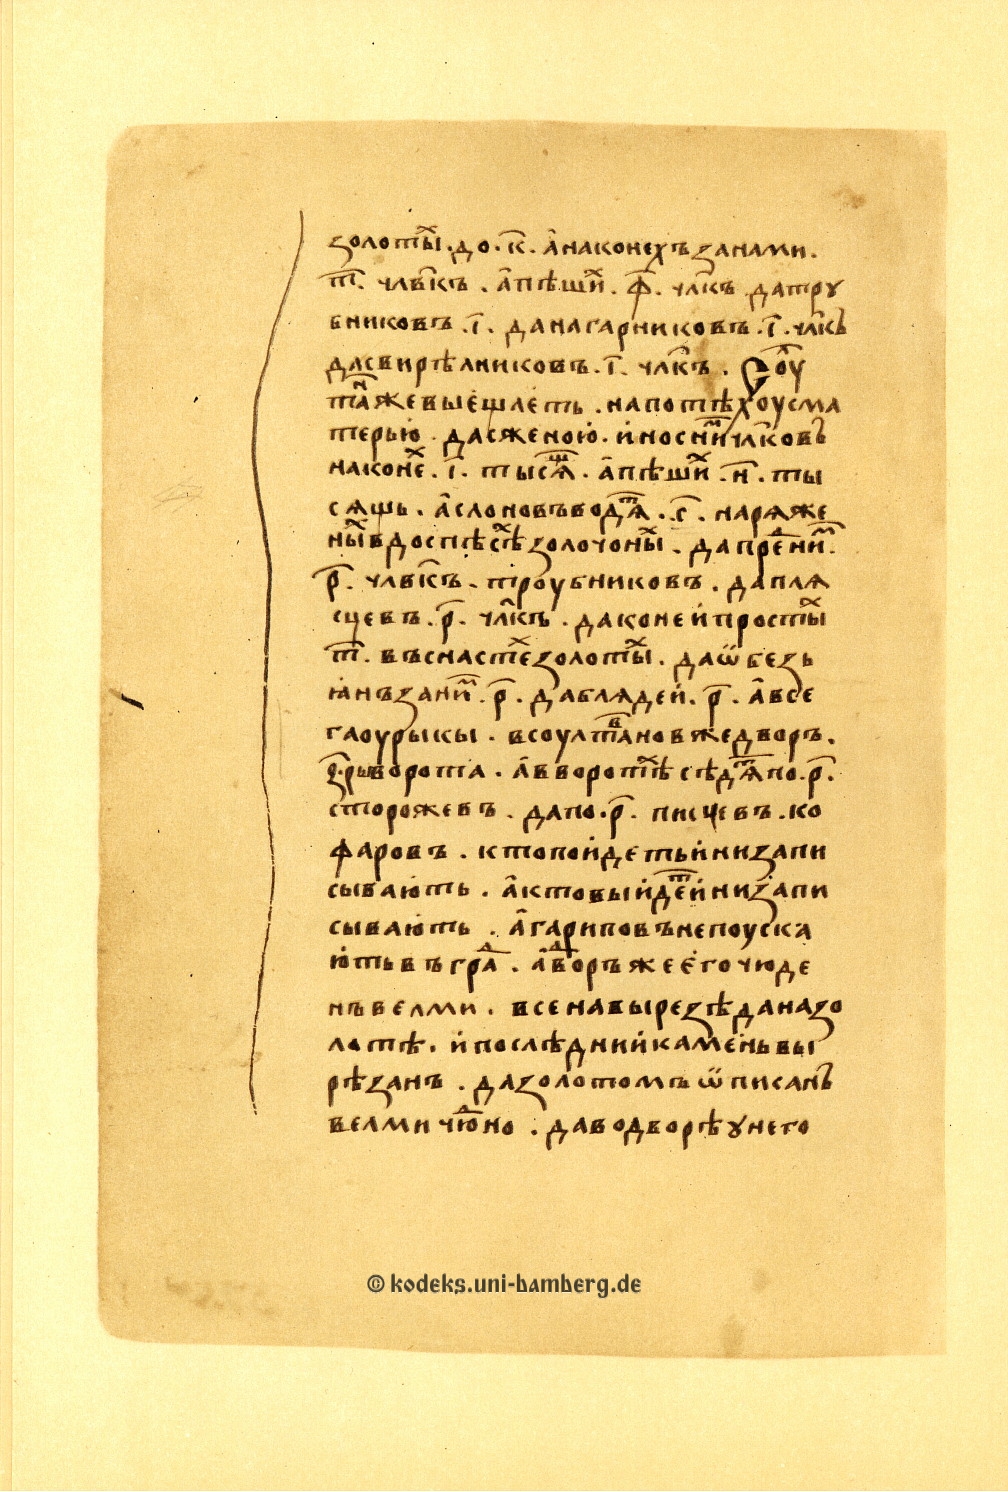 золоты́х . до . к҃ . а҆ на конехъ за нами .
т҃ . члв҃къ . а҆ пѣши́х . ф҃ . чл҃къ да тру
бниковъ . і҃ . да нагарниковъ . і҃ . чл҃къ
да свирѣлниковъ . і҃ . чл҃къ . Соулⷮ
таⷩ же выешлеть . на потѣхоу с ма
терью да с женою . и҆ но с ниⷨ чл҃ковъ
на конеⷯ . і҃ . тысѧⷳ . а҆ пѣшиⷯ . н҃ . ты
сѧщь . а҆ слоновъ водѧⷮ . с҃ . нарѧже
ныⷯ в доспѣсѣⷯ золочоныⷯ . да преⷣ ниⷨ .
р҃ . члв҃къ . троубниковъ . да плѧ
сцевъ . р҃ . чл҃къ . да коней простыⷯ
т҃ . въ снастеⷯ золотыⷯ . да ѿбезь
ꙗнъ за ниⷨ . р҃ . да блѧдей . р҃ . а҆ все
гаоурыкы . в соултановⷡ же дворъ .
з҃ . ры ворота . а҆ в воротѣⷯ сѣдѧⷮ по . р҃ .
сторожевъ . да по . р҃ . писцевъ . ко
фаровъ . кто пойдеть и҆ни запи
сывають . а҆ кто выйдеⷮ и҆ни запи
сывають . а҆ гариповъ не поуска
ють въ граⷣ . а҆ дⷣворъ же е҆го чюде
нъ велми . все на вырезѣ да на зо
лотѣ . и҆ послѣдний камень вы
рѣзанъ . да золотомъ ѿписанъ
велми чюⷣно . да во дворѣ у него
© kodeks.uni-bamberg.de